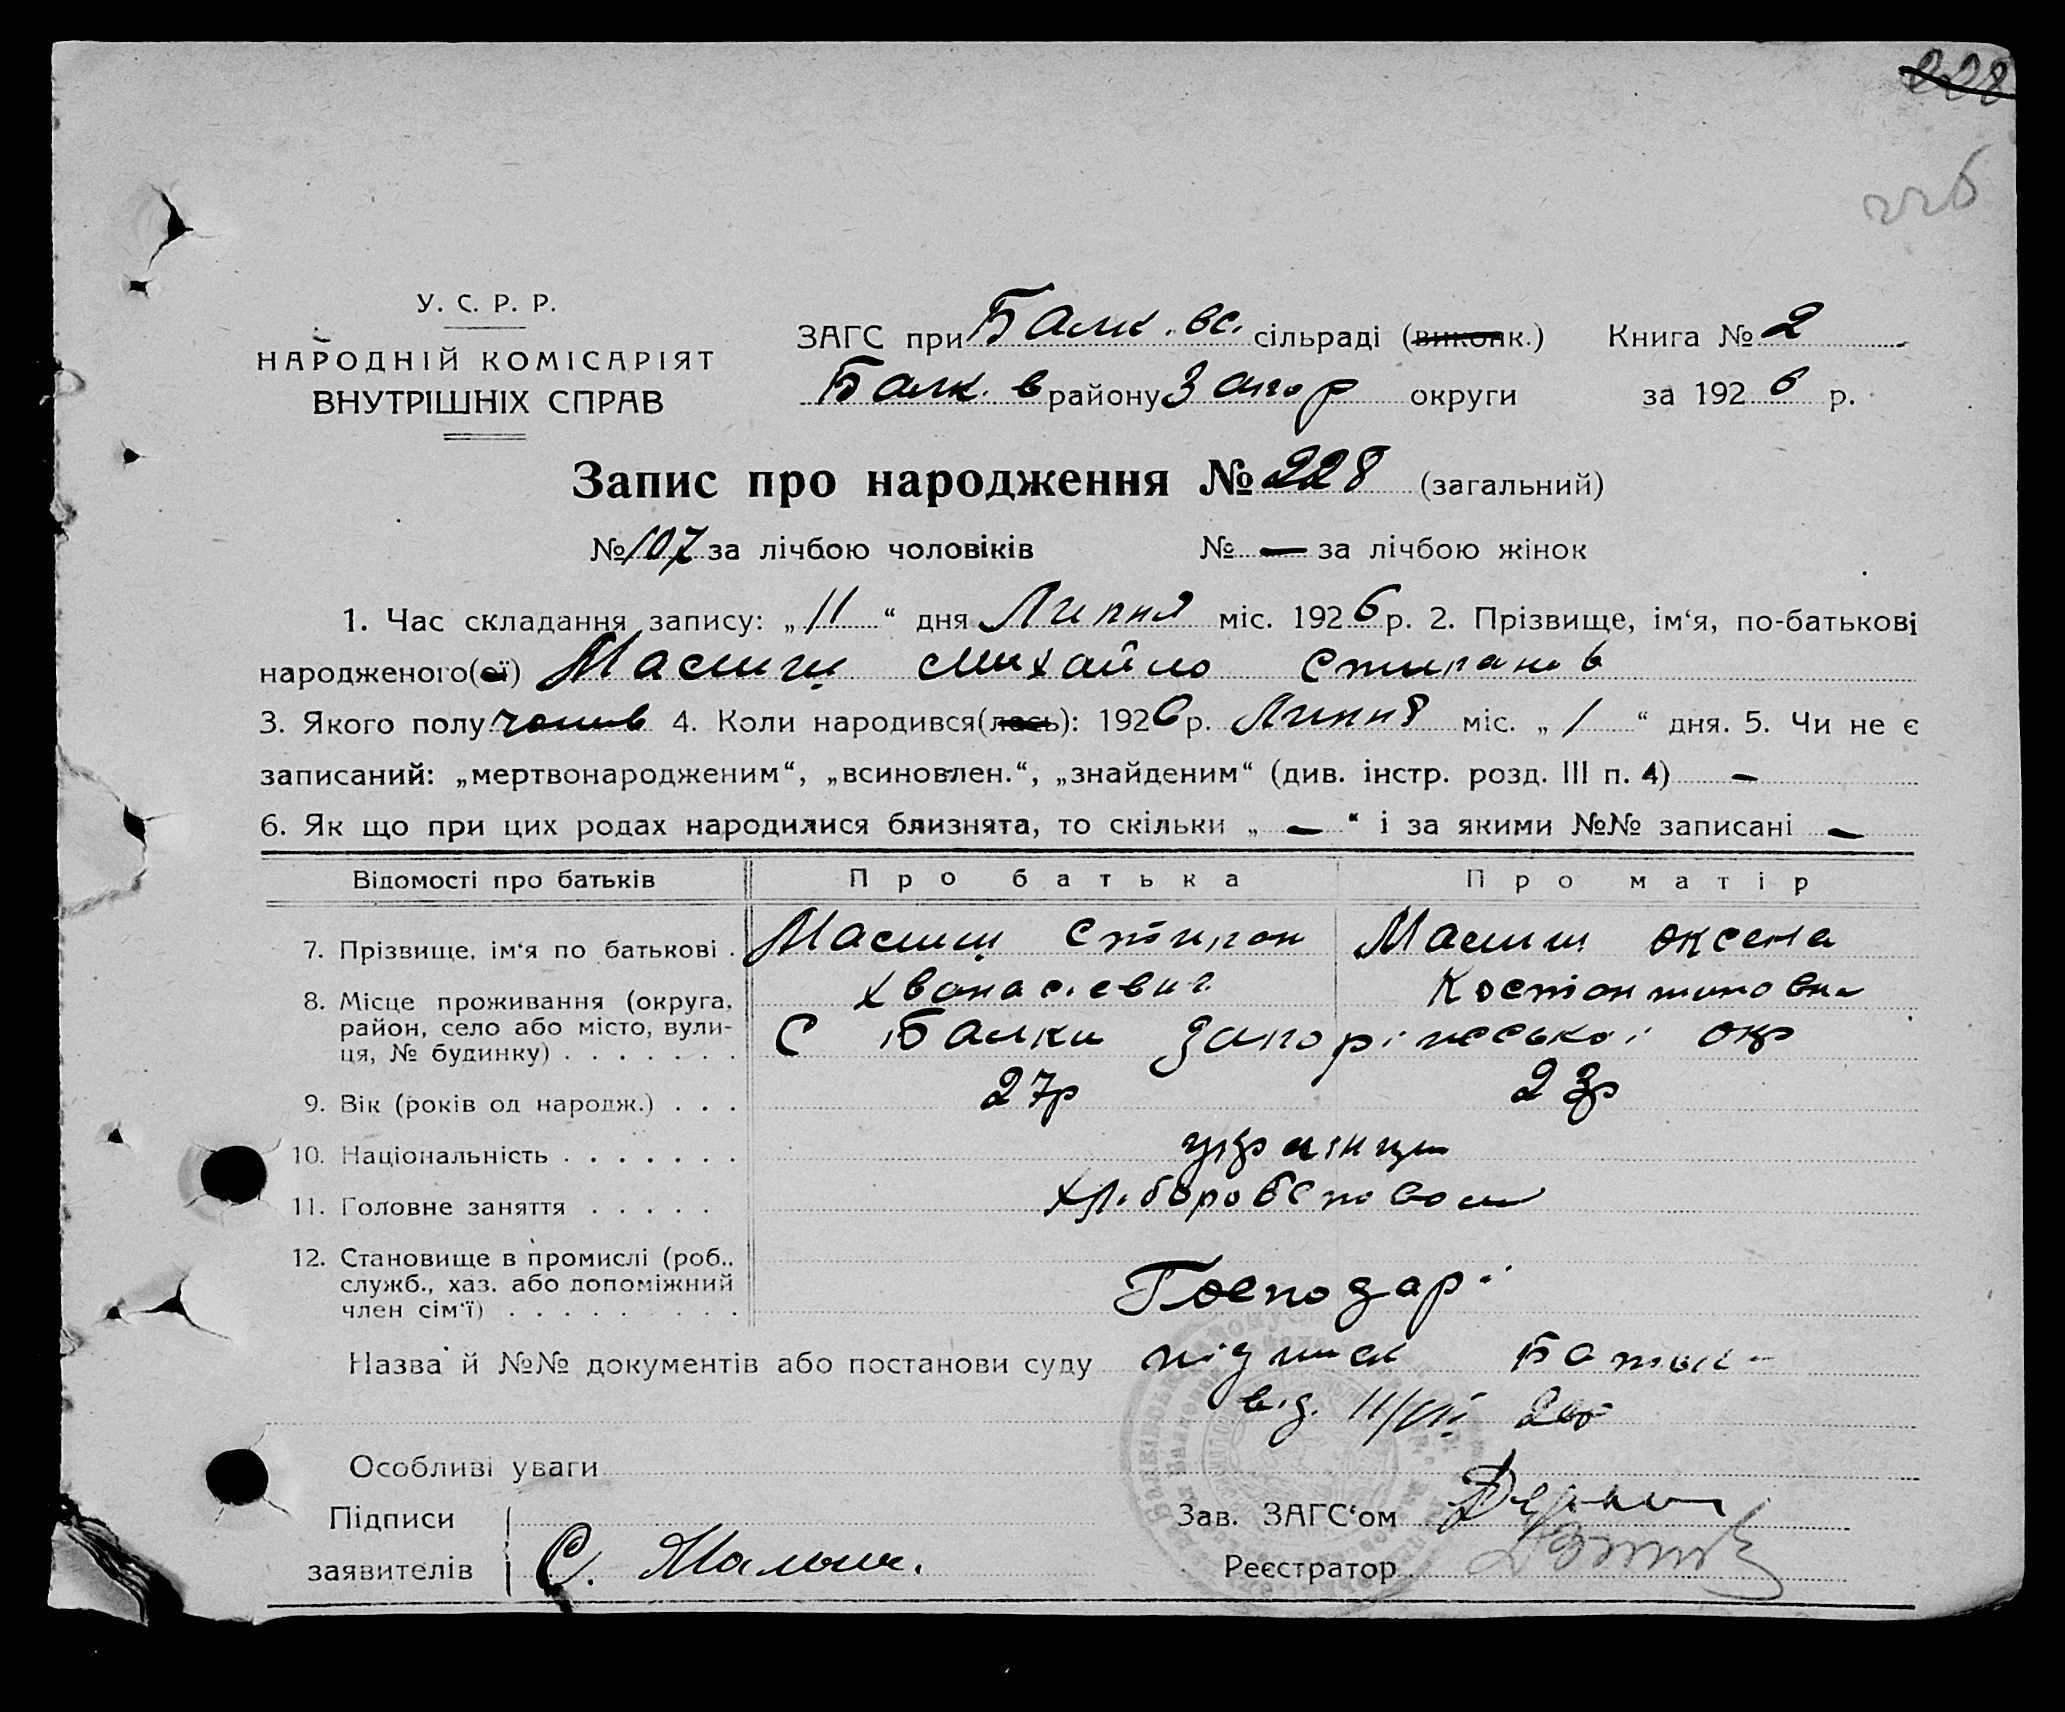 228
226
У. С. Р. Р.
НАРОДНІЙ КОМІСАРІЯТ
ВНУТРІШНІХ СПРАВ
ЗАГС при Балк. вс. сільраді (виконк.) Книга № 2
Балк. в району Запор округи за 1926 р.
Запис про народження № 228 (загальний)
№ 107 за лічбою чоловіків № — за лічбою жінок
1. Час складання запису: „11“ дня Липня міс. 1926 р. 2. Прізвище, ім‘я, по-батькові
народженого(ої) Михайло Степанов
3. Якого полу чолов 4. Коли народився(лась): 1926 р. Липня міс. „1“ дня. 5. Чи не є
записаний: „мертвонародженим“, „всиновлен.“, „знайденим“ (див. інстр. розд. III п. 4) —
6. Як що при цих родах народилися близнята, то скільки „—“ і за якими №№ записані —
Відомості про батьків Про батька Про матір
7. Прізвище, ім‘я по батькові . Степан Оксена
Хванасієвич Костонтиновна
8. Місце проживання (округа,
район, село або місто, вули-
ця, № будинку) . . . . . . . С Балки Запоріжської окр
9. Вік (років од народж.) . . . 27р 23р
10. Національність . . . . . . . українци
11. Головне заняття . . . . . хліборобством
12. Становище в промислі (роб.,
служб., хаз. або допоміжний
член сім‘ї) . . . . . . . . . Господарі
Назва й №№ документів або постанови суду підписк Батьк-
від. 11/VII 26р
Особливі уваги
Підписи Зав. ЗАГС‘ом
заявителів С. Реєстратор